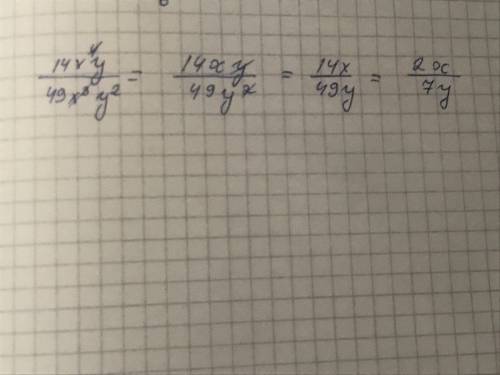 14x⁴y/49x³y² = 14xy/49y² = 14x/49y = 2x/7y